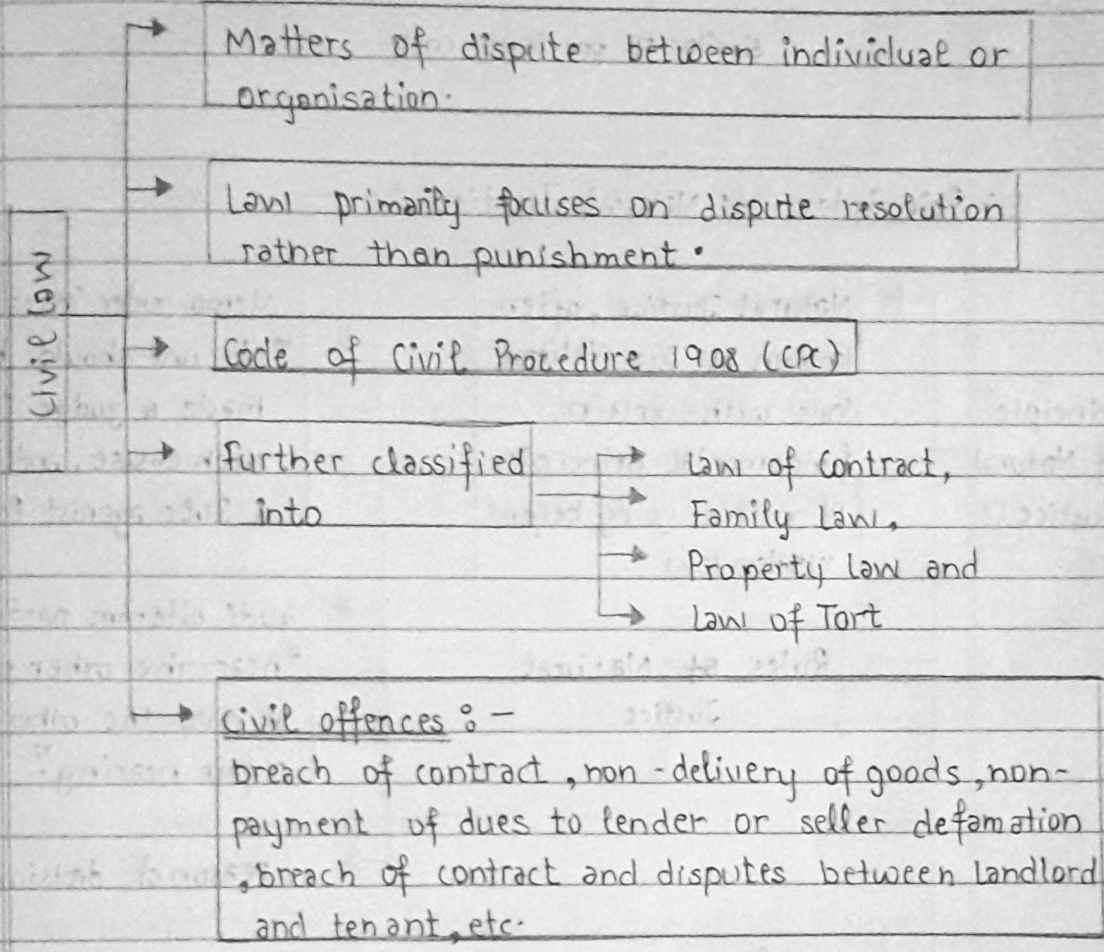 Matters of dispute between individual or
organisation.
Law primarily focuses on dispute resolution
rather than punishment.
Civil Law
Code of Civil Procedure 1908 (CPC)
further classified
into
Law of Contract,
Family Law,
Property law and
Law of Tort
civil offences :-
breach of contract, non-delivery of goods, non-
payment of dues to lender or seller defamation
, breach of contract and disputes between landlord
and tenant, etc.